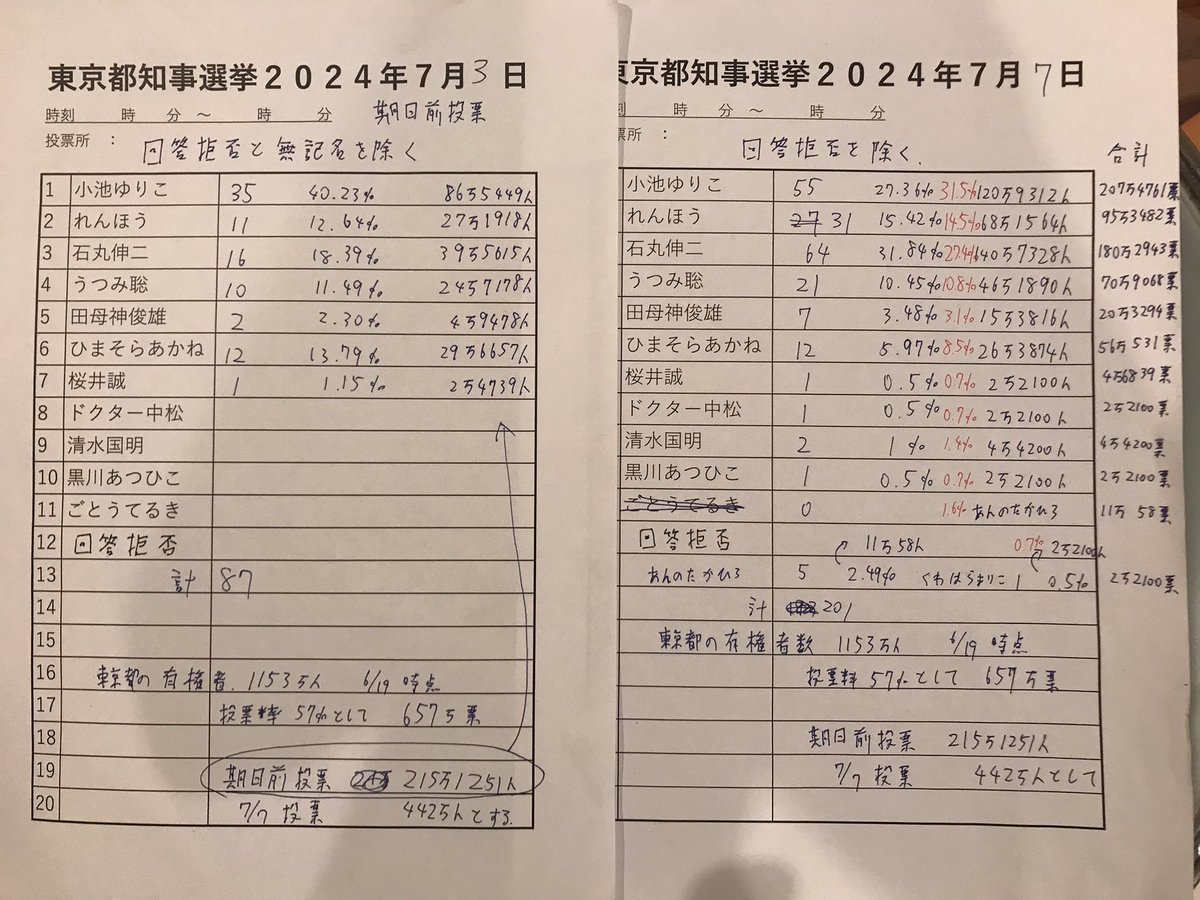 東京都知事選挙２０２４年７月3日
時刻　時　分～　時　分　期日前投票
投票所　：
回答拒否と無記名を除く
1 小池ゆりこ 35 40.23% 86万5449人
2 れんほう 11 12.64% 27万1918人
3 石丸伸二 16 18.39% 39万5615人
4 うつみ聡 10 11.49% 24万7178人
5 田母神俊雄 2 2.30% 4万9478人
6 ひまそらあかね 12 13.79% 29万6657人
7 桜井誠 1 1.15% 2万4739人
8 ドクター中松
9 清水国明
10 黒川あつひこ
11 ごとうてるき
12 回答拒否
13 計 87
14
15
16 東京都の有権者 1153万人 6/19 時点
17 投票率 57%として 657万票
18
19 期日前投票 215万1251人
20 7/7 投票 442万人とする.
東京都知事選挙２０２４年７月7日
刻　時　分～　時　分
票所　：
回答拒否を除く.
合計
小池ゆりこ 55 27.36% 31.5% 120万9312人 207万4761票
れんほう 27 31 15.42% 14.5% 68万1564人 95万3482票
石丸伸二 64 31.84% 27.4% 140万7328人 180万2943票
うつみ聡 21 10.45% 10.8% 46万1890人 70万9068票
田母神俊雄 7 3.48% 3.1% 15万3816人 20万3294票
ひまそらあかね 12 5.97% 8.5% 26万3874人 56万531票
桜井誠 1 0.5% 0.7% 2万2100人 4万6839票
ドクター中松 1 0.5% 0.7% 2万2100人 2万2100票
清水国明 2 1% 1.4% 4万4200人 4万4200票
黒川あつひこ 1 0.5% 0.7% 2万2100人 2万2100票
ごとうてるき 0 1.6% あんのたかひろ 11万58票
回答拒否 11万58人 0.7% 2万2100人
あんのたかひろ 5 2.49% くわはらまりこ 1 0.5% 2万2100票
計 201
東京都の有権者数 1153万人 6/19 時点
投票料 57%として 657万票
期日前投票 215万1251人
7/7 投票 442万人として